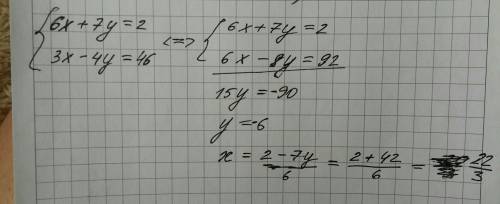 {6x+7y=2 <=> {6x+7y=2
{3x-4y=46 {6x-8y=92
15y=-90
y=-6
x = (2-7y)/6 = (2+42)/6 = 22/3